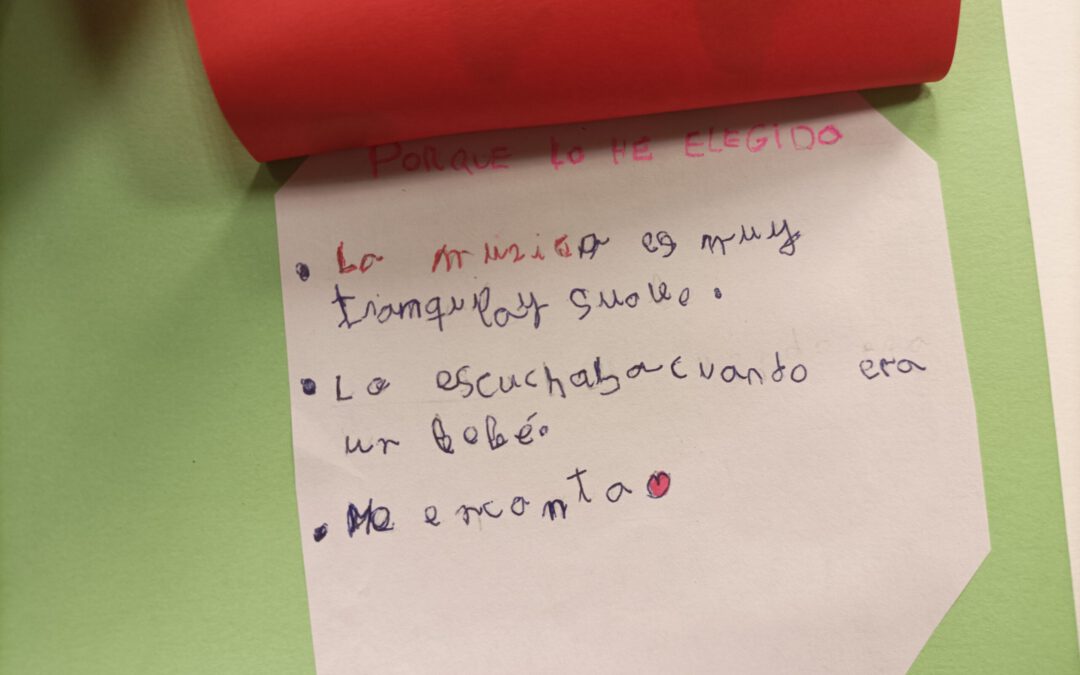 PORQUE LO HE ELEGIDO
• La musica es muy
tranquila y suave.
• La escuchaba cuando era
un bebé.
• Me encanta